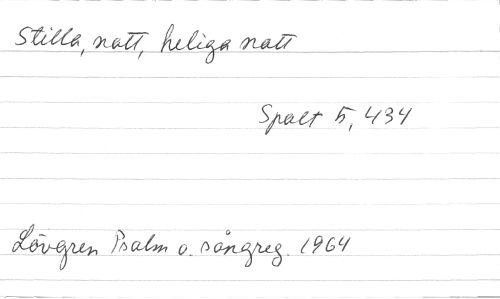 Stilla, natt, heliga natt
Spalt 5, 434
Lövgren Psalm o. sångreg. 1964